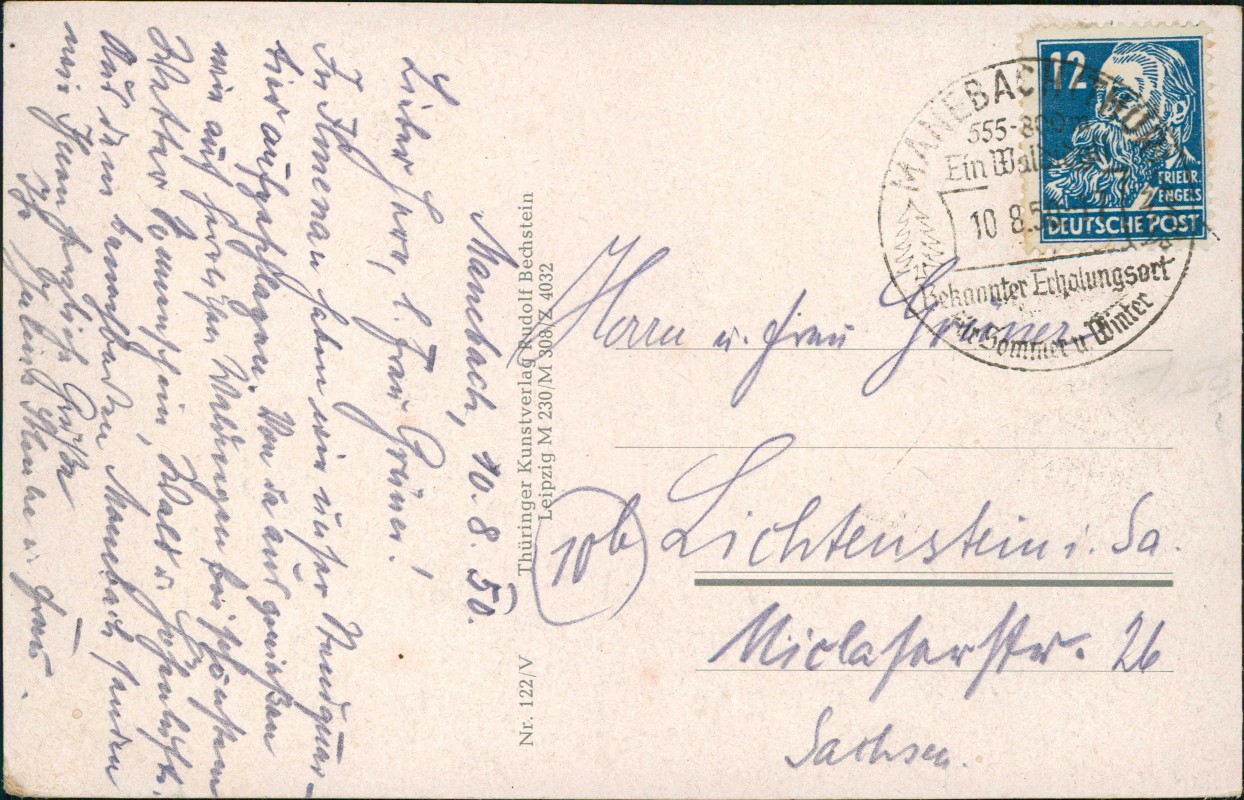 Manebach, 10. 8. 50.
Lieber Herr, l. Frau Grüner!
In Ilmenau haben wir unser Standquar-
tier aufgeschlagen. Von da aus genießen
wir auf herrlichen Waldungen bei schönstem
Wetter Sonnenschein, Wald u. Höhenluft.
Aus dem benachbarten Manebach senden
wir Ihnen herzliche Grüße
Ihr Julius u. Frau.
Thüringer Kunstverlag Rudolf Bechstein
Leipzig M 230/M 308/Z 4032
Nr. 122/V
MANEBACH THÜR
555-800 m
Ein
10 8.50
Bekannter Erholungsort
für Sommer u Winter
12
FRIEDR.
ENGELS
DEUTSCHE POST
Herrn u. Frau Grüner
10b Lichtenstein i. Sa.
26
Sachsen.